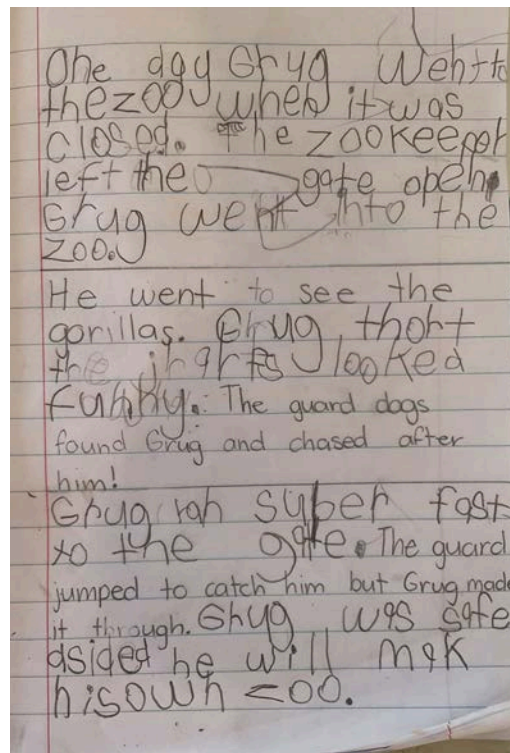 One day Grug went to
the zoo when it was
closed. The zookeeper
left the gate open.
Grug went into the
zoo.
He went to see the
gorillas. Grug thort
the looked
funny. The guard dogs
found Grug and chased after
him!
Grug ran super fast
to the gate. The guard
jumped to catch him but Grug made
it through. Grug was safe
dsided he will mak
his own zoo.